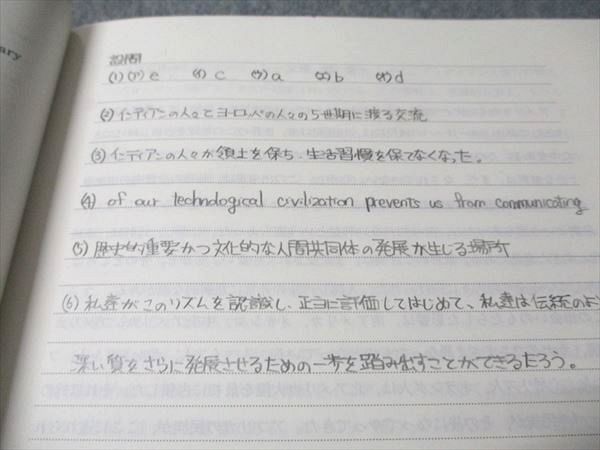 ary
設問
(1) (ア) e (イ) c (ウ) a (エ) b (オ) d
(2) インディアンの人々とヨーロッパの人々の5世期に渡る交流
(3) インディアンの人々が領土を保ち、生活習慣を保てなくなった。
(4) of our technological civilization prevents us from communicating
(5) 歴史的重要かつ文化的な人間共同体の発展が生じる場所
(6) 私達がこのリズムを認識し、正当に評価してはじめて、私達は伝統のよ
深い質をさらに発展させるための一歩を踏み出すことができるだろう。